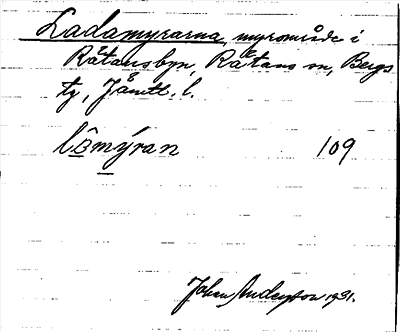 Ladamyrarna, myrområde i
Rätansbyn, Rätans sn, Bergs
tg, Jämtl. l.
lômýran 109
Johan Anderson 1931.